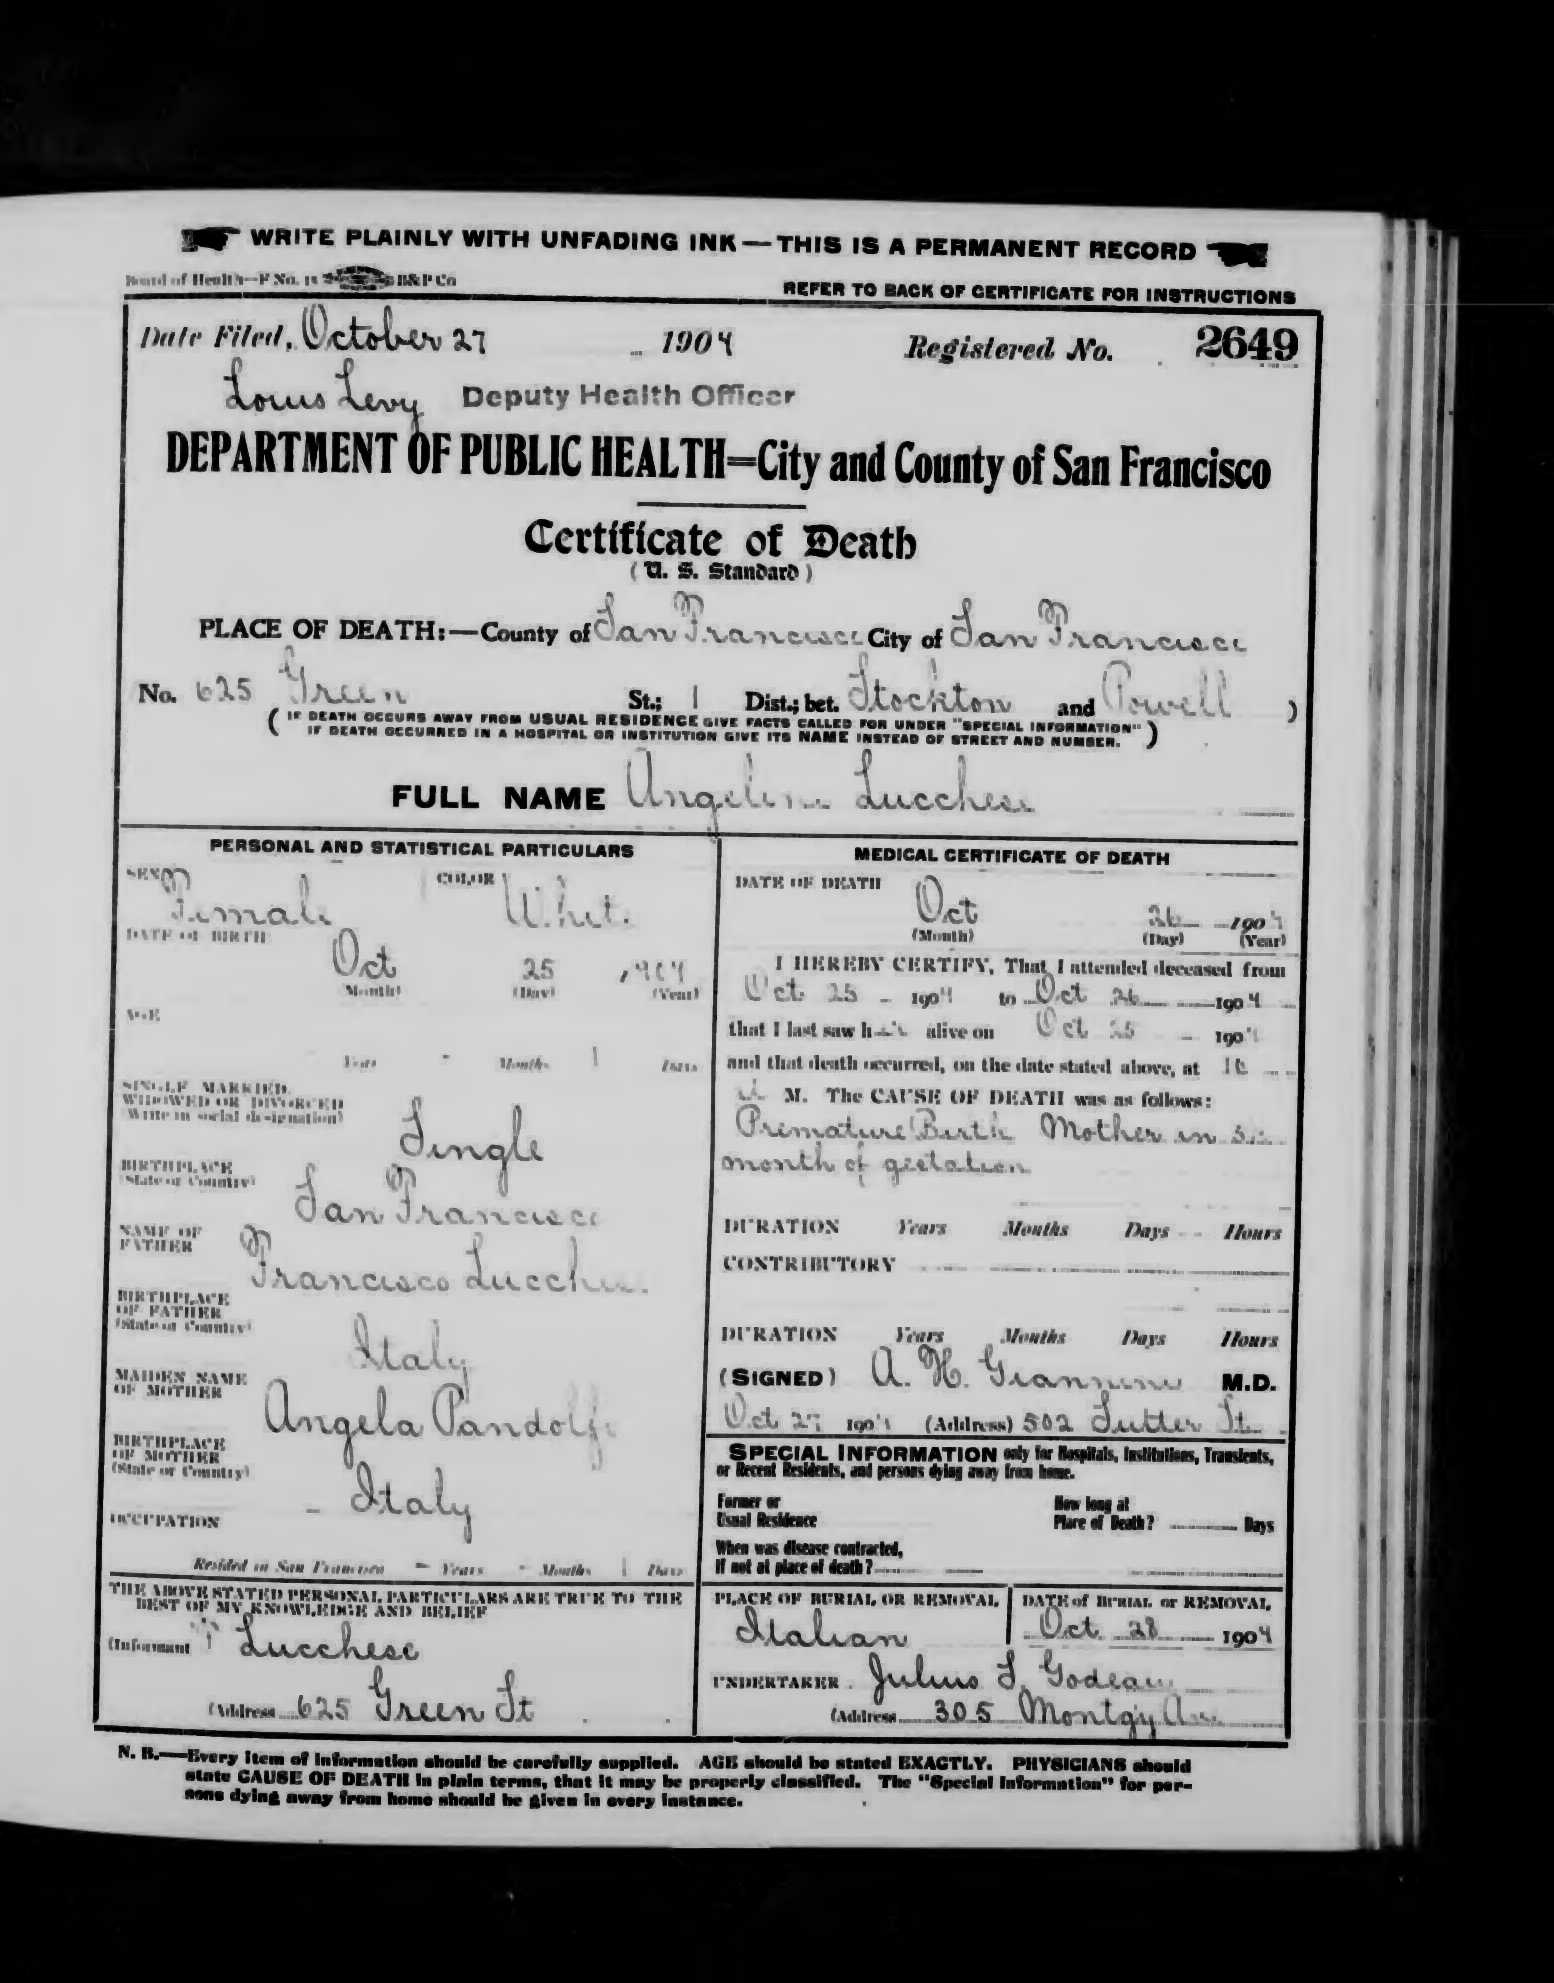 WRITE PLAINLY WITH UNFADING INK—THIS IS A PERMANENT RECORD
Board of Health—F No. 15 B&P Co
REFER TO BACK OF CERTIFICATE FOR INSTRUCTIONS
Date Filed, October 27 1904 Registered No. 2649
Louis Levy Deputy Health Officer
DEPARTMENT OF PUBLIC HEALTH=City and County of San Francisco
Certificate of Death
(U. S. Standard)
PLACE OF DEATH:—County of San Francisco City of San Francisco
No. 625 Green St.; 1 Dist.; bet. Stockton and Powell )
( IF DEATH OCCURS AWAY FROM USUAL RESIDENCE GIVE FACTS CALLED FOR UNDER "SPECIAL INFORMATION"
IF DEATH OCCURRED IN A HOSPITAL OR INSTITUTION GIVE ITS NAME INSTEAD OF STREET AND NUMBER. )
FULL NAME Angelina Lucchese
PERSONAL AND STATISTICAL PARTICULARS
SEX Female COLOR White
DATE OF BIRTH
Oct 25 1904
(Month) (Day) (Year)
AGE
Years - Months 1 Days
SINGLE MARRIED,
WIDOWED OR DIVORCED
(Write in social designation)
Single
BIRTHPLACE
(State or Country)
San Francisco
NAME OF
FATHER
Francisco Lucchese
BIRTHPLACE
OF FATHER
(State or Country)
Italy
MAIDEN NAME
OF MOTHER
Angela Pandolfi
BIRTHPLACE
OF MOTHER
(State or Country)
Italy
OCCUPATION
Resided in San Francisco - Years - Months 1 Days
THE ABOVE STATED PERSONAL PARTICULARS ARE TRUE TO THE
BEST OF MY KNOWLEDGE AND BELIEF
(Informant F Lucchese
(Address 625 Green St
MEDICAL CERTIFICATE OF DEATH
DATE OF DEATH
Oct 26 1904
(Month) (Day) (Year)
I HEREBY CERTIFY, That I attended deceased from
Oct 25 1904 to Oct 26 1904
that I last saw her alive on Oct 25 1904
and that death occurred, on the date stated above, at 10
M. The CAUSE OF DEATH was as follows:
Premature Birth Mother in
month of gestation
DURATION Years Months Days Hours
CONTRIBUTORY
DURATION Years Months Days Hours
(SIGNED) A. H. Giannini M.D.
Oct 27 1904 (Address) 502 Sutter St.
SPECIAL INFORMATION only for Hospitals, Institutions, Transients,
or Recent Residents, and persons dying away from home.
Former or
Usual Residence
How long at
Place of Death? Days
When was disease contracted,
If not at place of death?
PLACE OF BURIAL OR REMOVAL
Italian
DATE of BURIAL or REMOVAL
Oct 28 1904
UNDERTAKER Julius S. Godeau
(Address 305 Montgy Ave
N. B.—Every item of information should be carefully supplied. AGE should be stated EXACTLY. PHYSICIANS should
state CAUSE OF DEATH in plain terms, that it may be properly classified. The "Special Information" for per-
sons dying away from home should be given in every instance.